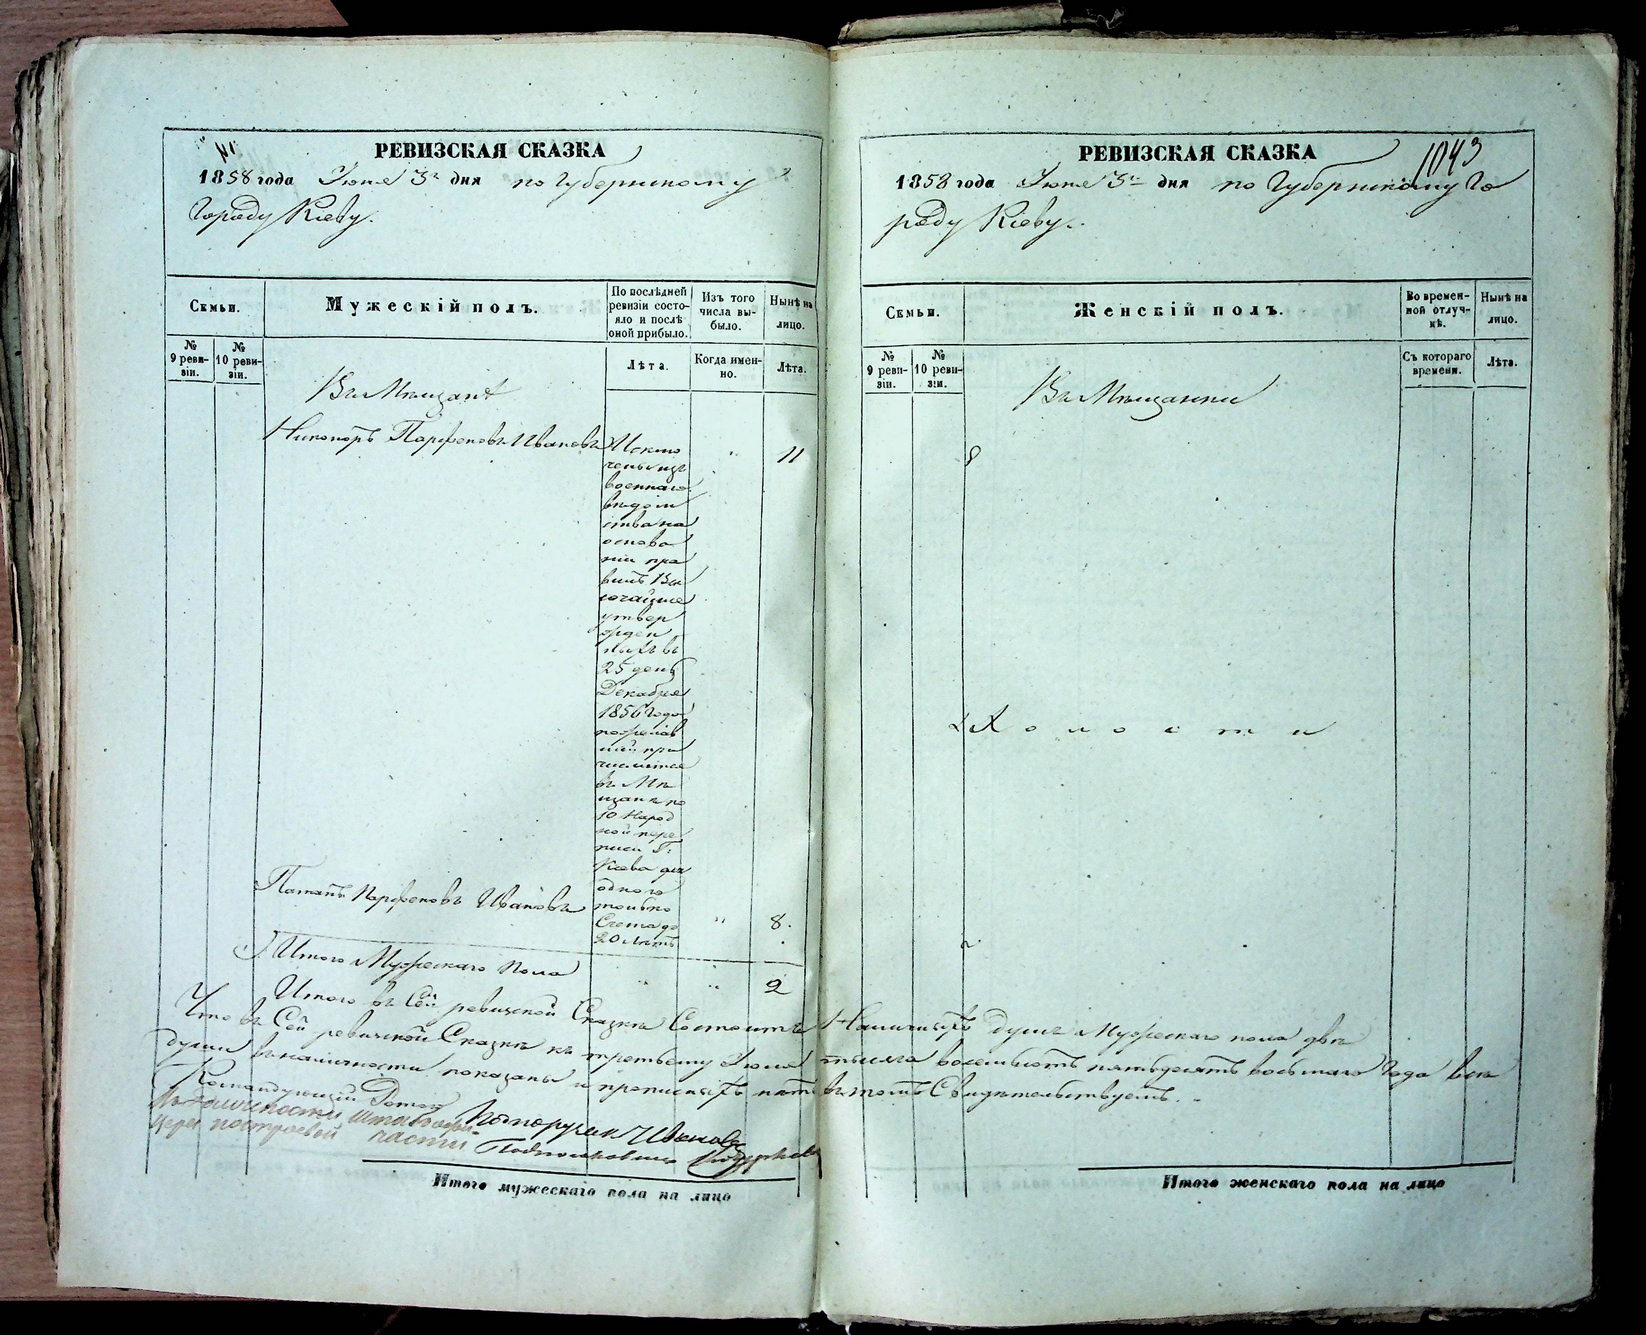 РЕВИЗСКАЯ СКАЗКА
1858 года Іюня 3го дня по Губернскому
Городу Кіеву.
Семьи.
Мужескій полъ.
По послѣдней
ревизіи состо-
яло и послѣ
оной прибыло.
Изъ того
числа вы-
было.
Нынѣ на
лицо.
№
9 реви-
зіи.
№
10 реви-
зіи.
Лѣта.
Когда имен-
но.
Лѣта.
Въ Мѣщане
Никоноръ Парфеновъ Ивановъ
11
Исклю
ченъ изъ
военнаго
вѣдом
ства на
основа
ніи пра
вилъ Вы
сочайше
утвер
жден
ныхъ въ
25 день
Декабря
1856 года
пожелав
шій при
числится
въ Мѣ
щане по
10 Народ
ной пере
писи Г.
Кіева для
одного
только
Счета до
20 лѣтъ
Потапъ Парфеновъ Ивановъ
8.
Итого Мужескаго Пола
2
Итого въ Сей ревизской Сказкѣ Состоитъ Наличныхъ душъ Мужескаго пола двѣ
Что въ Сей ревизской Сказкѣ къ третьему Іюня тысяча восемьсотъ пятьдесятъ восьмаго Года все
души въ наличности показаны и прописныхъ нѣтъ въ томъ Свидѣтельствуемъ.
Командующій Ротою
Поторучик Ивановъ
части Подполковникъ
Итого мужескаго пола на лицо
РЕВИЗСКАЯ СКАЗКА
1043
1858 года Іюня 3го дня по Губернскому Го
роду Кіеву.
Семьи.
Женскій полъ.
Во времен-
ной отлуч-
кѣ.
Нынѣ на
лицо.
№
9 реви-
зіи.
№
10 реви-
зіи.
Съ котораго
времени.
Лѣта.
Въ Мѣщанки
Холосты
Итого женскаго пола на лицо